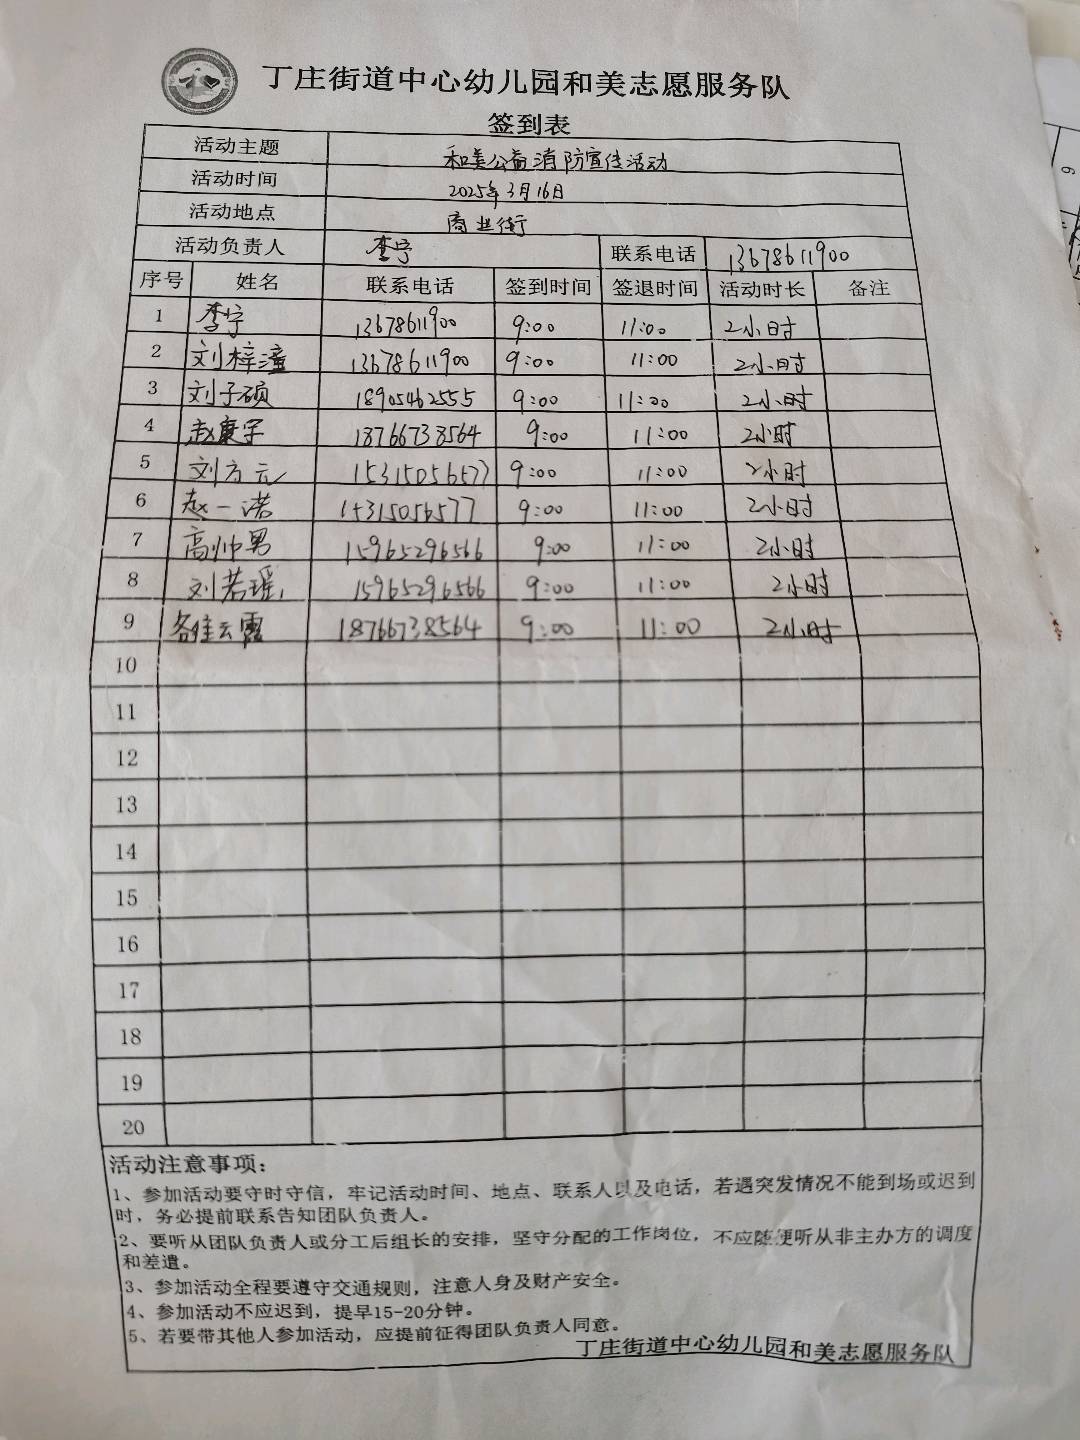 丁庄街道中心幼儿园和美志愿服务队
签到表
活动主题 和美公益消防宣传活动
活动时间 2025年3月16日
活动地点 商业街
活动负责人 李宁 联系电话 13678611900
序号 姓名 联系电话 签到时间 签退时间 活动时长 备注
1 李宁 13678611900 9:00 11:00 2小时
2 刘梓潼 13678611900 9:00 11:00 2小时
3 刘子硕 18905462555 9:00 11:00 2小时
4 赵康宇 18766738564 9:00 11:00 2小时
5 刘方元 15315056577 9:00 11:00 2小时
6 赵一诺 15315056577 9:00 11:00 2小时
7 高帅男 15965296566 9:00 11:00 2小时
8 刘若瑶 15965296566 9:00 11:00 2小时
9 云霞 18766738564 9:00 11:00 2小时
10
11
12
13
14
15
16
17
18
19
20
活动注意事项：
1、参加活动要守时守信，牢记活动时间、地点、联系人以及电话，若遇突发情况不能到场或迟到
时，务必提前联系告知团队负责人。
2、要听从团队负责人或分工后组长的安排，坚守分配的工作岗位，不应随便听从非主办方的调度
和差遣。
3、参加活动全程要遵守交通规则，注意人身及财产安全。
4、参加活动不应迟到，提早15-20分钟。
5、若要带其他人参加活动，应提前征得团队负责人同意。
丁庄街道中心幼儿园和美志愿服务队